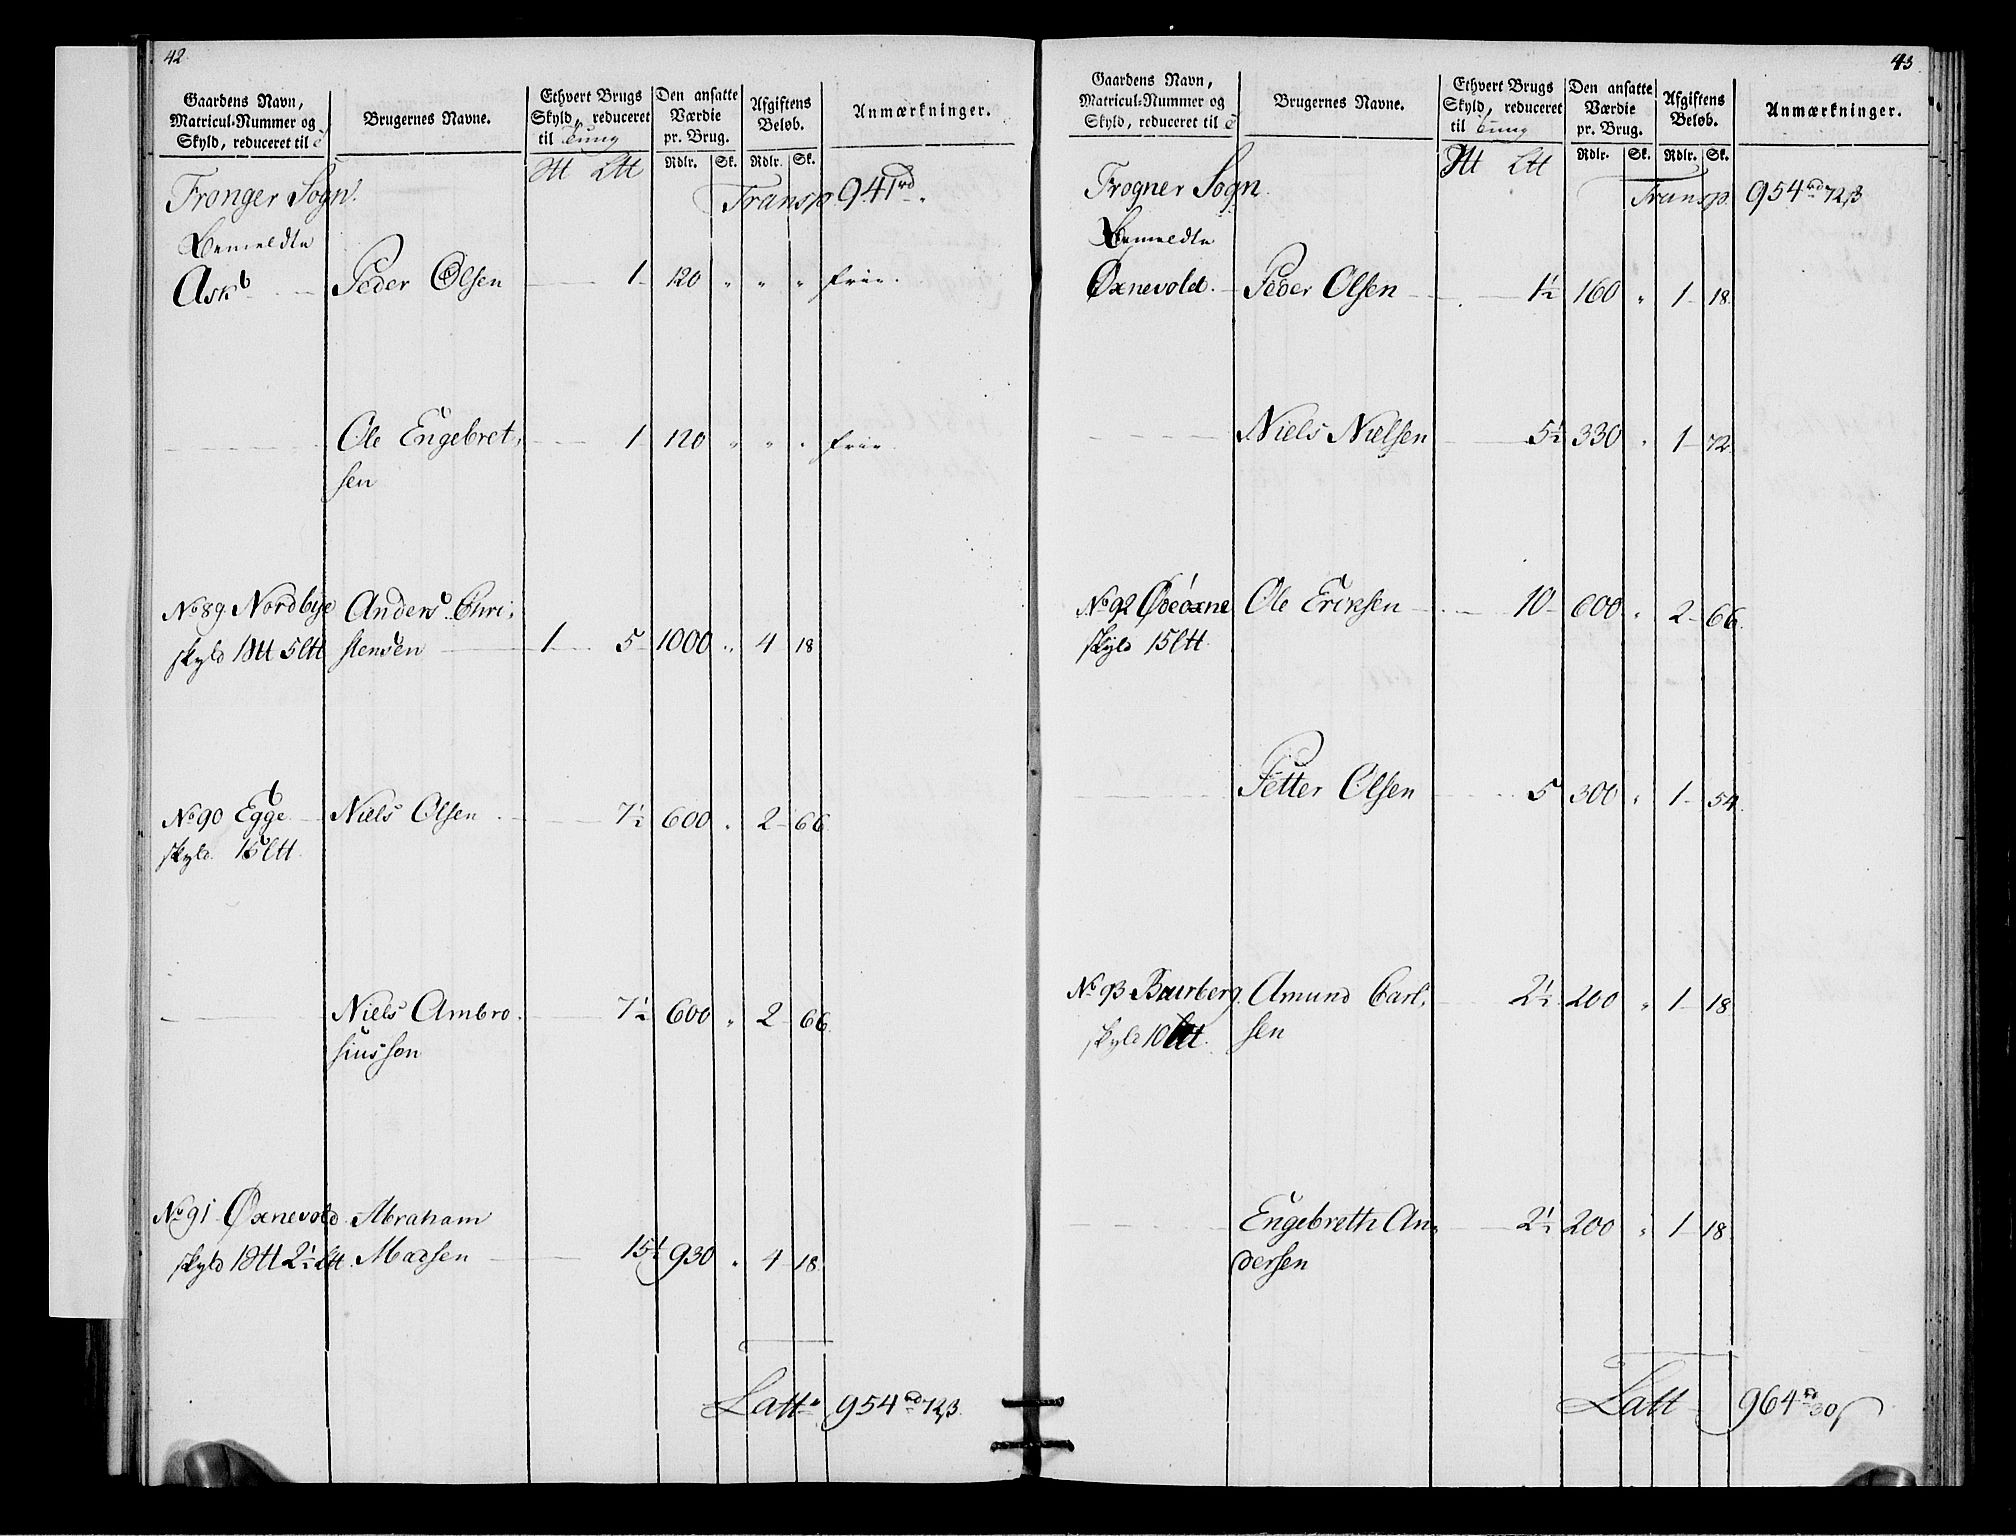 42
Gaardens Navn,
Matricul-Nummer og
Skyld, reduceret til
Brugernes Navne.
Ethvert Brugs
Skyld, reduceret
til Tung
Den ansatte
Værdie
pr. Brug.
Afgiftens
Beløb.
Anmærkninger.
Rdlr. Sk. Rdlr. Sk.
Fronger Sogn. Transp 941 rd
Bemeldte
Ask Peder Olsen 1 120 " " " frie.
Ole Engebret- 1 120 " " " frie
sen
No 89 Nordbye Anders Chri-
skyld 1 5 stensen 1 5 1000 " 4 18
No 90 Egge Niels Olsen 7½ 600 " 2 66
skyld 15
Niels Ambro- 7½ 600 " 2 66
siussen
No 91 Oxnevold Abraham
skyld 1 2½ Madsen 15½ 930 " 4 18
Latt 954 rd 72 β
43
Gaardens Navn,
Matricul-Nummer og
Skyld, reduceret til
Brugernes Navne.
Ethvert Brugs
Skyld, reduceret
til Tung
Den ansatte
Værdie
pr. Brug.
Afgiftens
Beløb.
Anmærkninger.
Rdlr. Sk. Rdlr. Sk.
Frogner Sogn. Transp. 954 rd 72 β
Bemeldte
Oxnevold. Peder Olsen 1½ 160 " 1 18
Niels Nielsen 5½ 330 " 1 72
No 92 Ole Eriksen 10 600 " 2 66
skyld 15
Petter Olsen 5 300 " 1 54
No 93 Amund Carl-
skyld 10 sen 2½ 200 " 1 18
Engebreth An- 2½ 200 " 1 18
dersen
Latt 964 rd 30 β